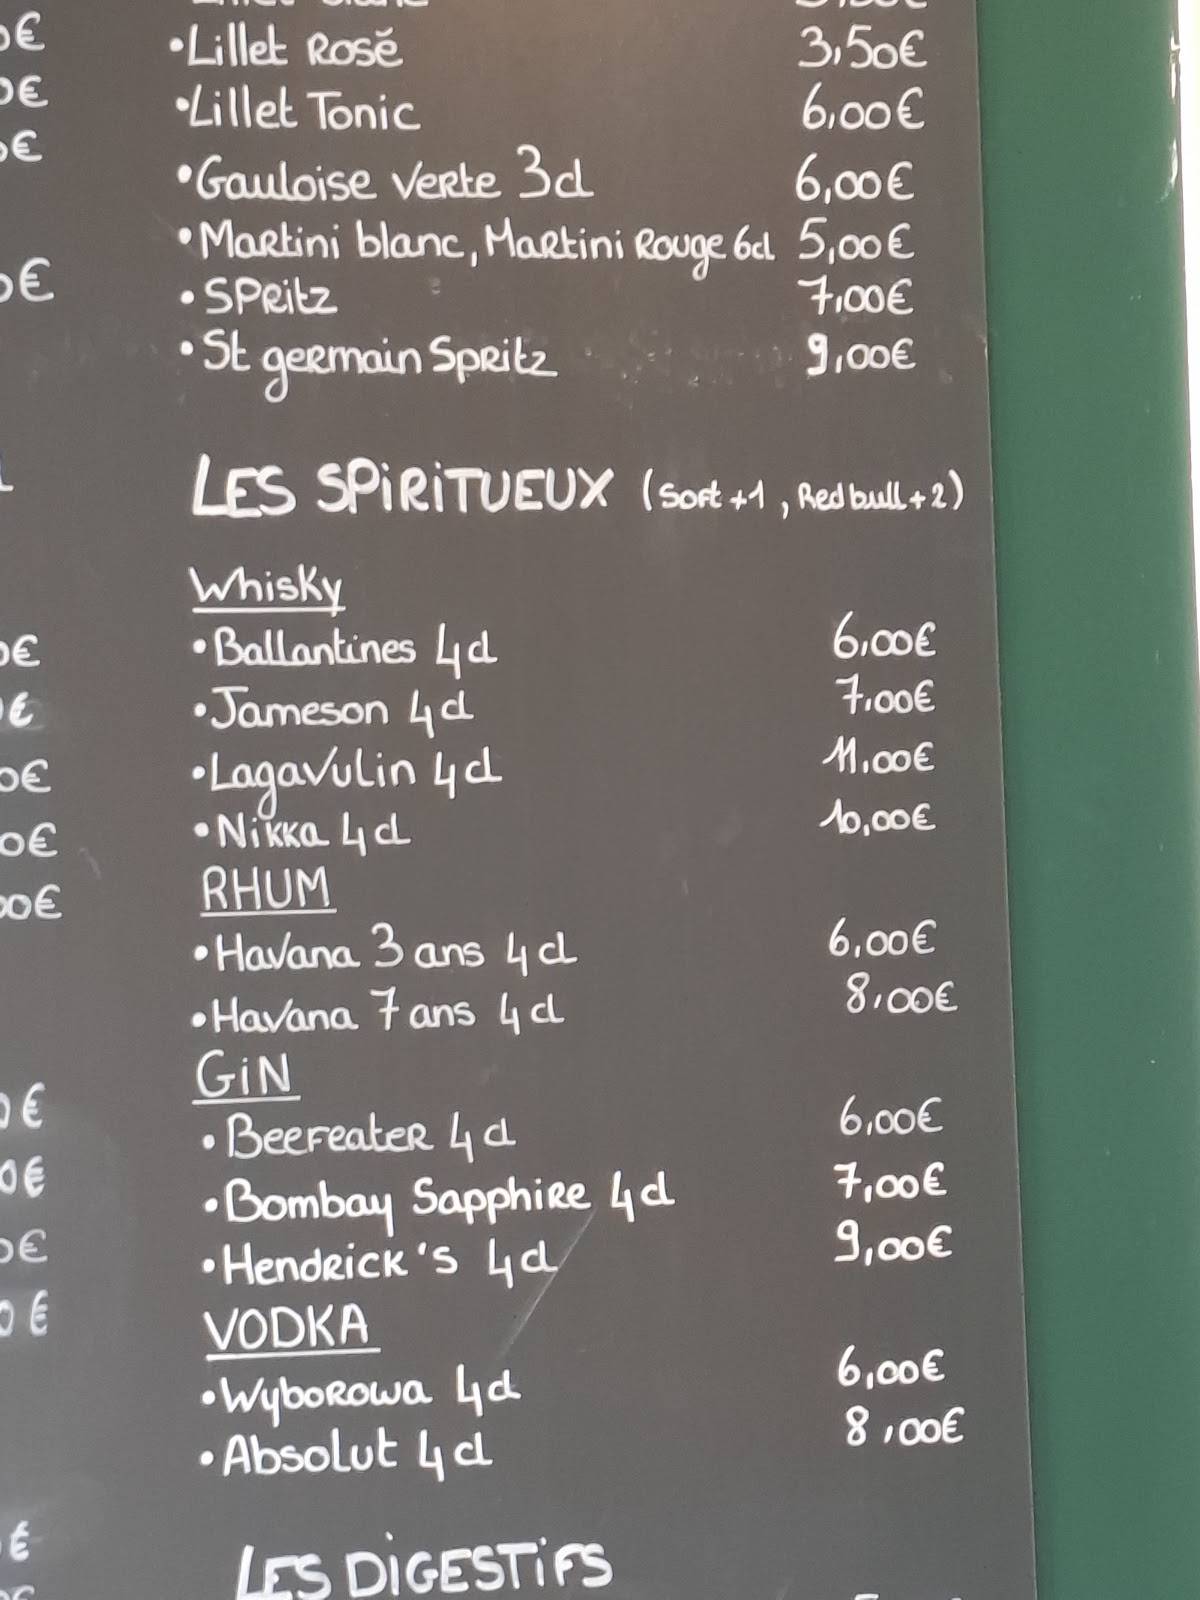 •Lillet Rosé 3,50€
•Lillet Tonic 6,00€
•Gauloise verte 3cl 6,00€
•Martini blanc, Martini Rouge 6cl 5,00€
•SPRitz 7,00€
•St germain Spritz 9,00€
LES SPiRiTUEUX (Soft +1, Red bull +2)
Whisky
•Ballantines 4cl 6,00€
•Jameson 4cl 7,00€
•Lagavulin 4cl 11,00€
•Nikka 4cl 10,00€
RHUM
•Havana 3 ans 4cl 6,00€
•Havana 7 ans 4cl 8,00€
GiN
•Beefeater 4cl 6,00€
•Bombay Sapphire 4cl 7,00€
•Hendrick's 4cl 9,00€
VODKA
•Wyborowa 4cl 6,00€
•Absolut 4cl 8,00€
LES DiGESTiFS